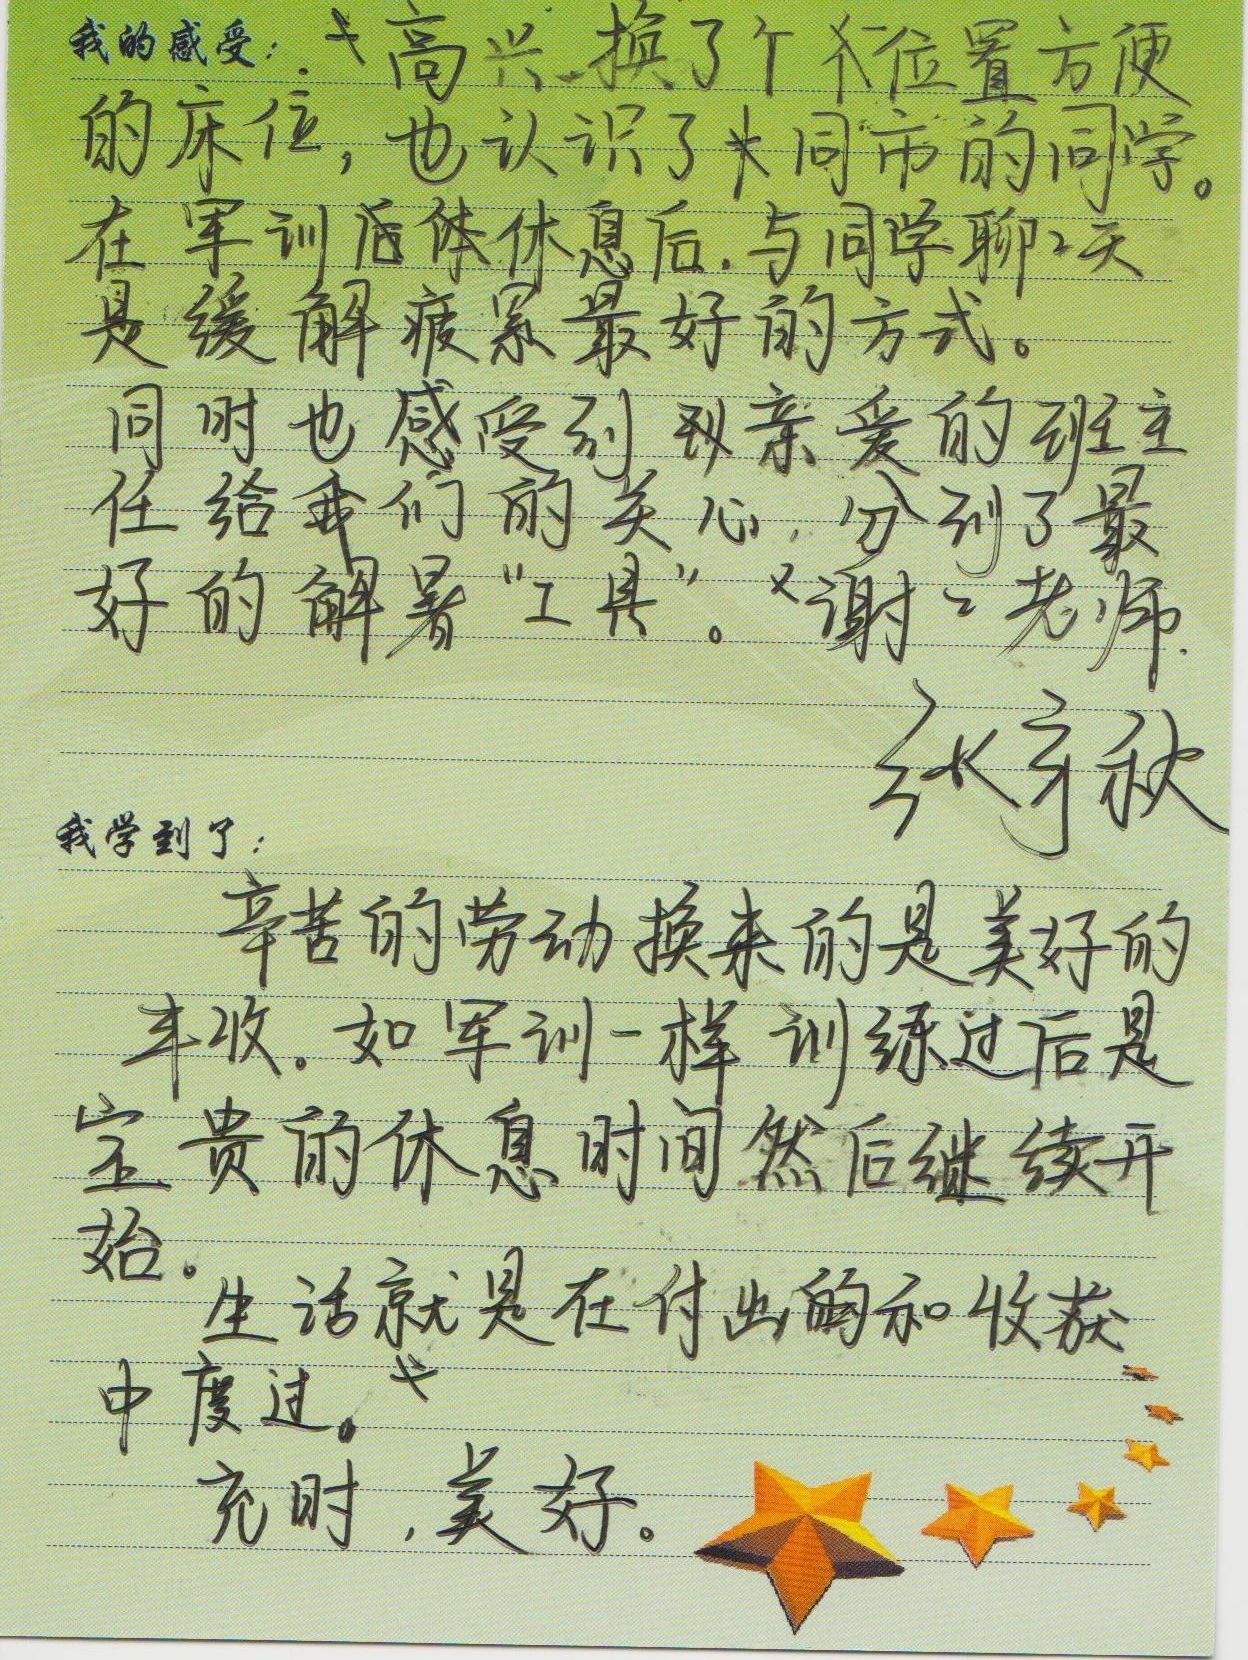 我的感受：高兴、换了个位置方便
的床位，也认识了同市的同学。
在军训后休息后，与同学聊2天
是缓解疲累最好的方式。
同时也感受到亲爱的班主
任给我们的关心，分到了最
好的解暑“工具”。谢2老师.
张宇秋
我学到了：
辛苦的劳动换来的是美好的
丰收。如军训一样训练过后是
宝贵的休息时间然后继续开
始。
生活就是在付出的和收获
中度过。
充时，美好。